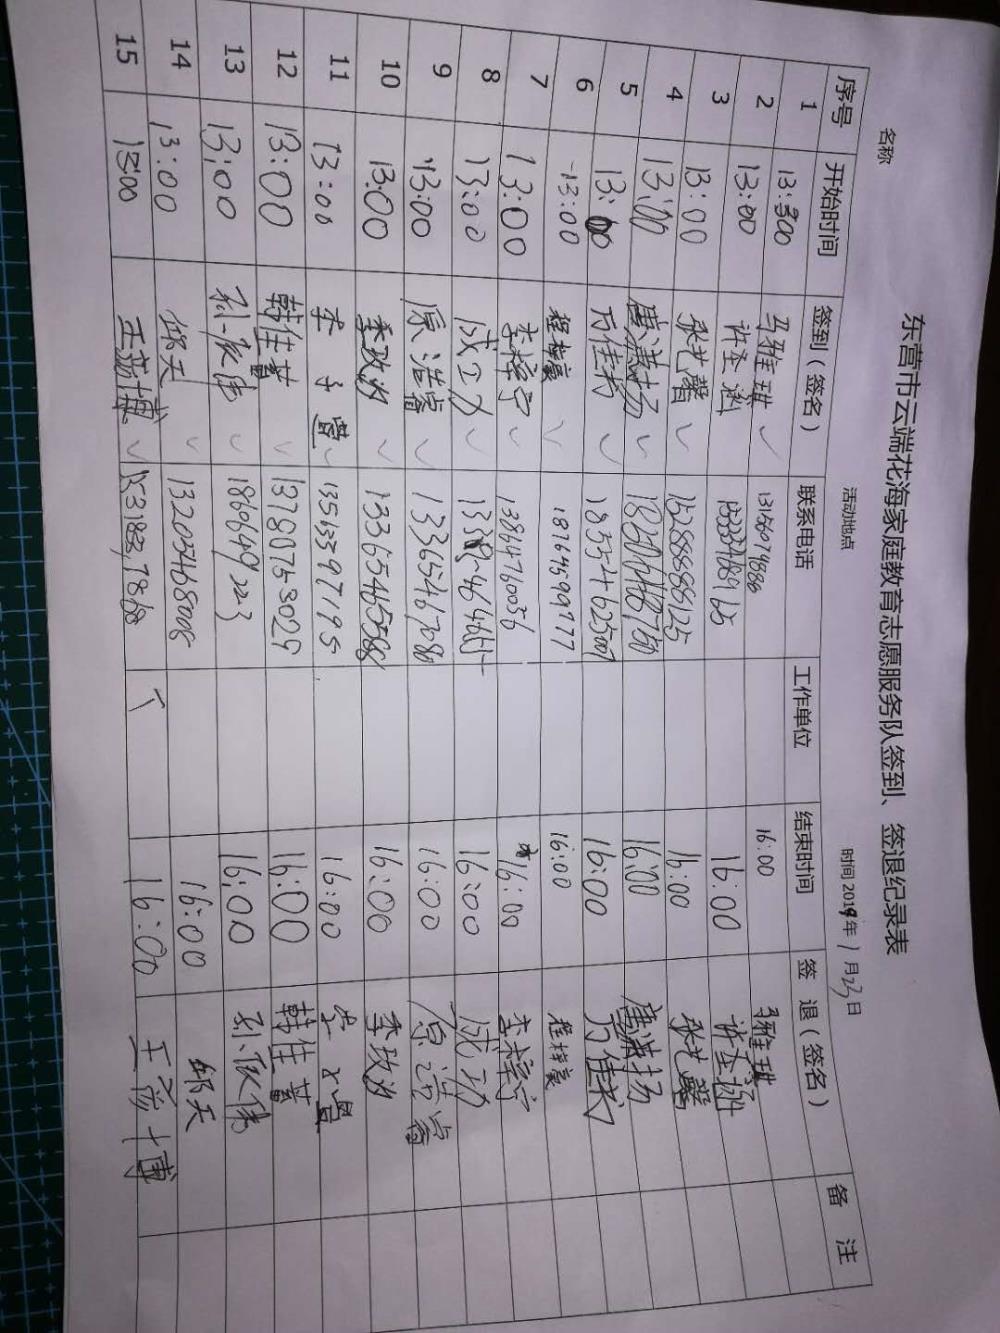 东营市云端花海家庭教育志愿服务队签到、签退纪录表
名称 活动地点 时间2019年1月23日
序号 开始时间 签到(签名) 联系电话 工作单位 结束时间 签 退(签名) 备 注
1 13:300 马雅琪 ✓ 16:00 马雅琪
2 13:00 许圣涵 16:00 许圣涵
3 13:00 张艺馨 ✓ 15288888125 16:00 张艺馨
4 13:00 唐潇扬 ✓ 16:00 唐潇扬
5 13:00 ✓ 16:00
6 13:00 程梓豪 ✓ 18764599977 16:00 程梓豪
7 13:00 李梓宁 ✓ 13864760036 16:00 李梓宁
8 13:00 成功 ✓ 16:00 成功
9 13:00 原浩睿 ✓ 13365467080 16:00 原浩睿
10 13:00 李玫汝 ✓ 16:00 李玫汝
11 13:00 李子萱 ✓ 13563397195 16:00
12 13:00 韩佳蓄 ✓ 13780753029 16:00 韩佳蓄
13 13:00 ✓ 18606492223 16:00
14 13:00 邱天 ✓ 13205468008 16:00 邱天
15 13:00 王菀博 ✓ 16:00 王菀博